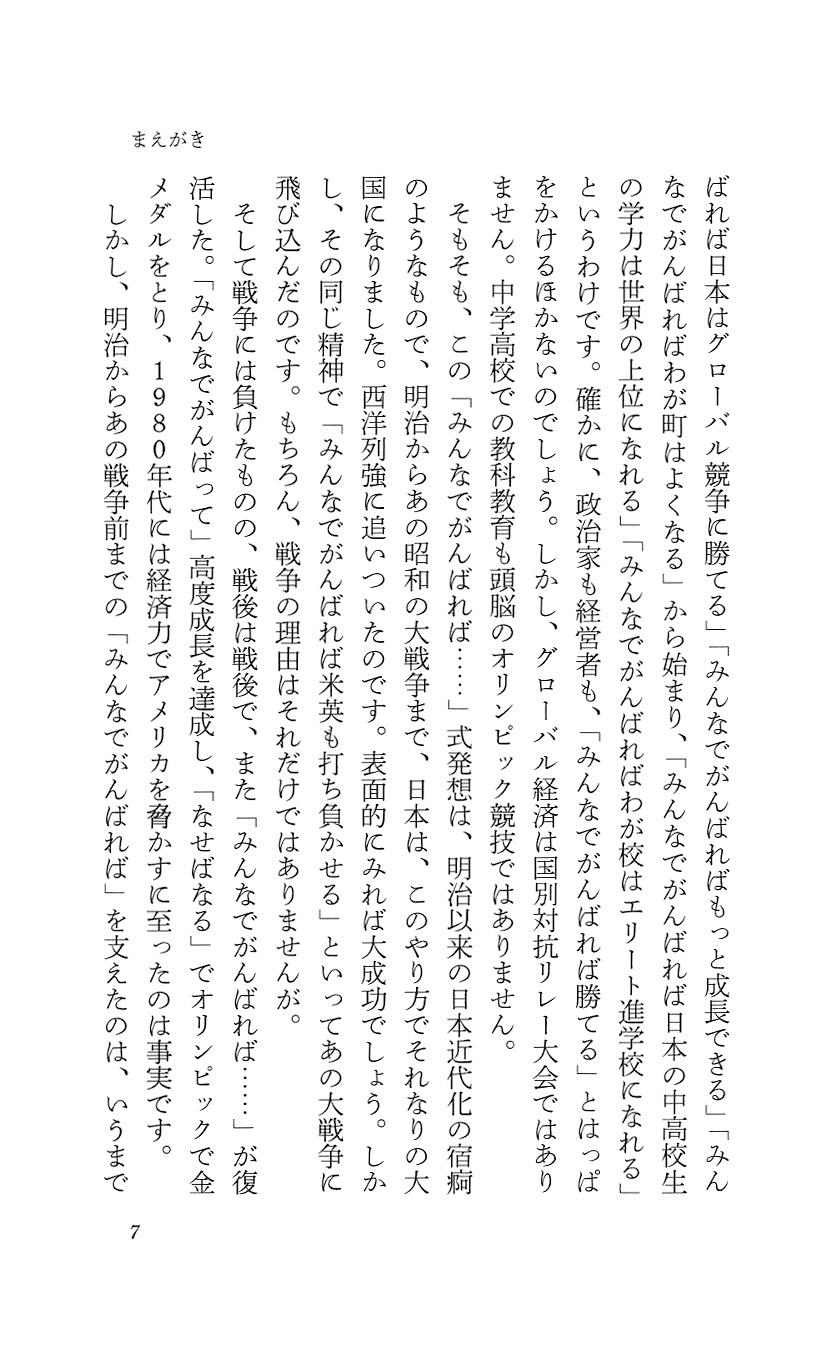 まえがき
ばれば日本はグローバル競争に勝てる」「みんなでがんばればもっと成長できる」「みん
なでがんばればわが町はよくなる」から始まり、「みんなでがんばれば日本の中高校生
の学力は世界の上位になれる」「みんなでがんばればわが校はエリート進学校になれる」
というわけです。確かに、政治家も経営者も、「みんなでがんばれば勝てる」とはっぱ
をかけるほかないのでしょう。しかし、グローバル経済は国別対抗リレー大会ではあり
ません。中学高校での教科教育も頭脳のオリンピック競技ではありません。
そもそも、この「みんなでがんばれば……」式発想は、明治以来の日本近代化の宿痾
のようなもので、明治からあの昭和の大戦争まで、日本は、このやり方でそれなりの大
国になりました。西洋列強に追いついたのです。表面的にみれば大成功でしょう。しか
し、その同じ精神で「みんなでがんばれば米英も打ち負かせる」といってあの大戦争に
飛び込んだのです。もちろん、戦争の理由はそれだけではありませんが。
そして戦争には負けたものの、戦後は戦後で、また「みんなでがんばれば……」が復
活した。「みんなでがんばって」高度成長を達成し、「なせばなる」でオリンピックで金
メダルをとり、1980年代には経済力でアメリカを脅かすに至ったのは事実です。
しかし、明治からあの戦争前までの「みんなでがんばれば」を支えたのは、いうまで
7